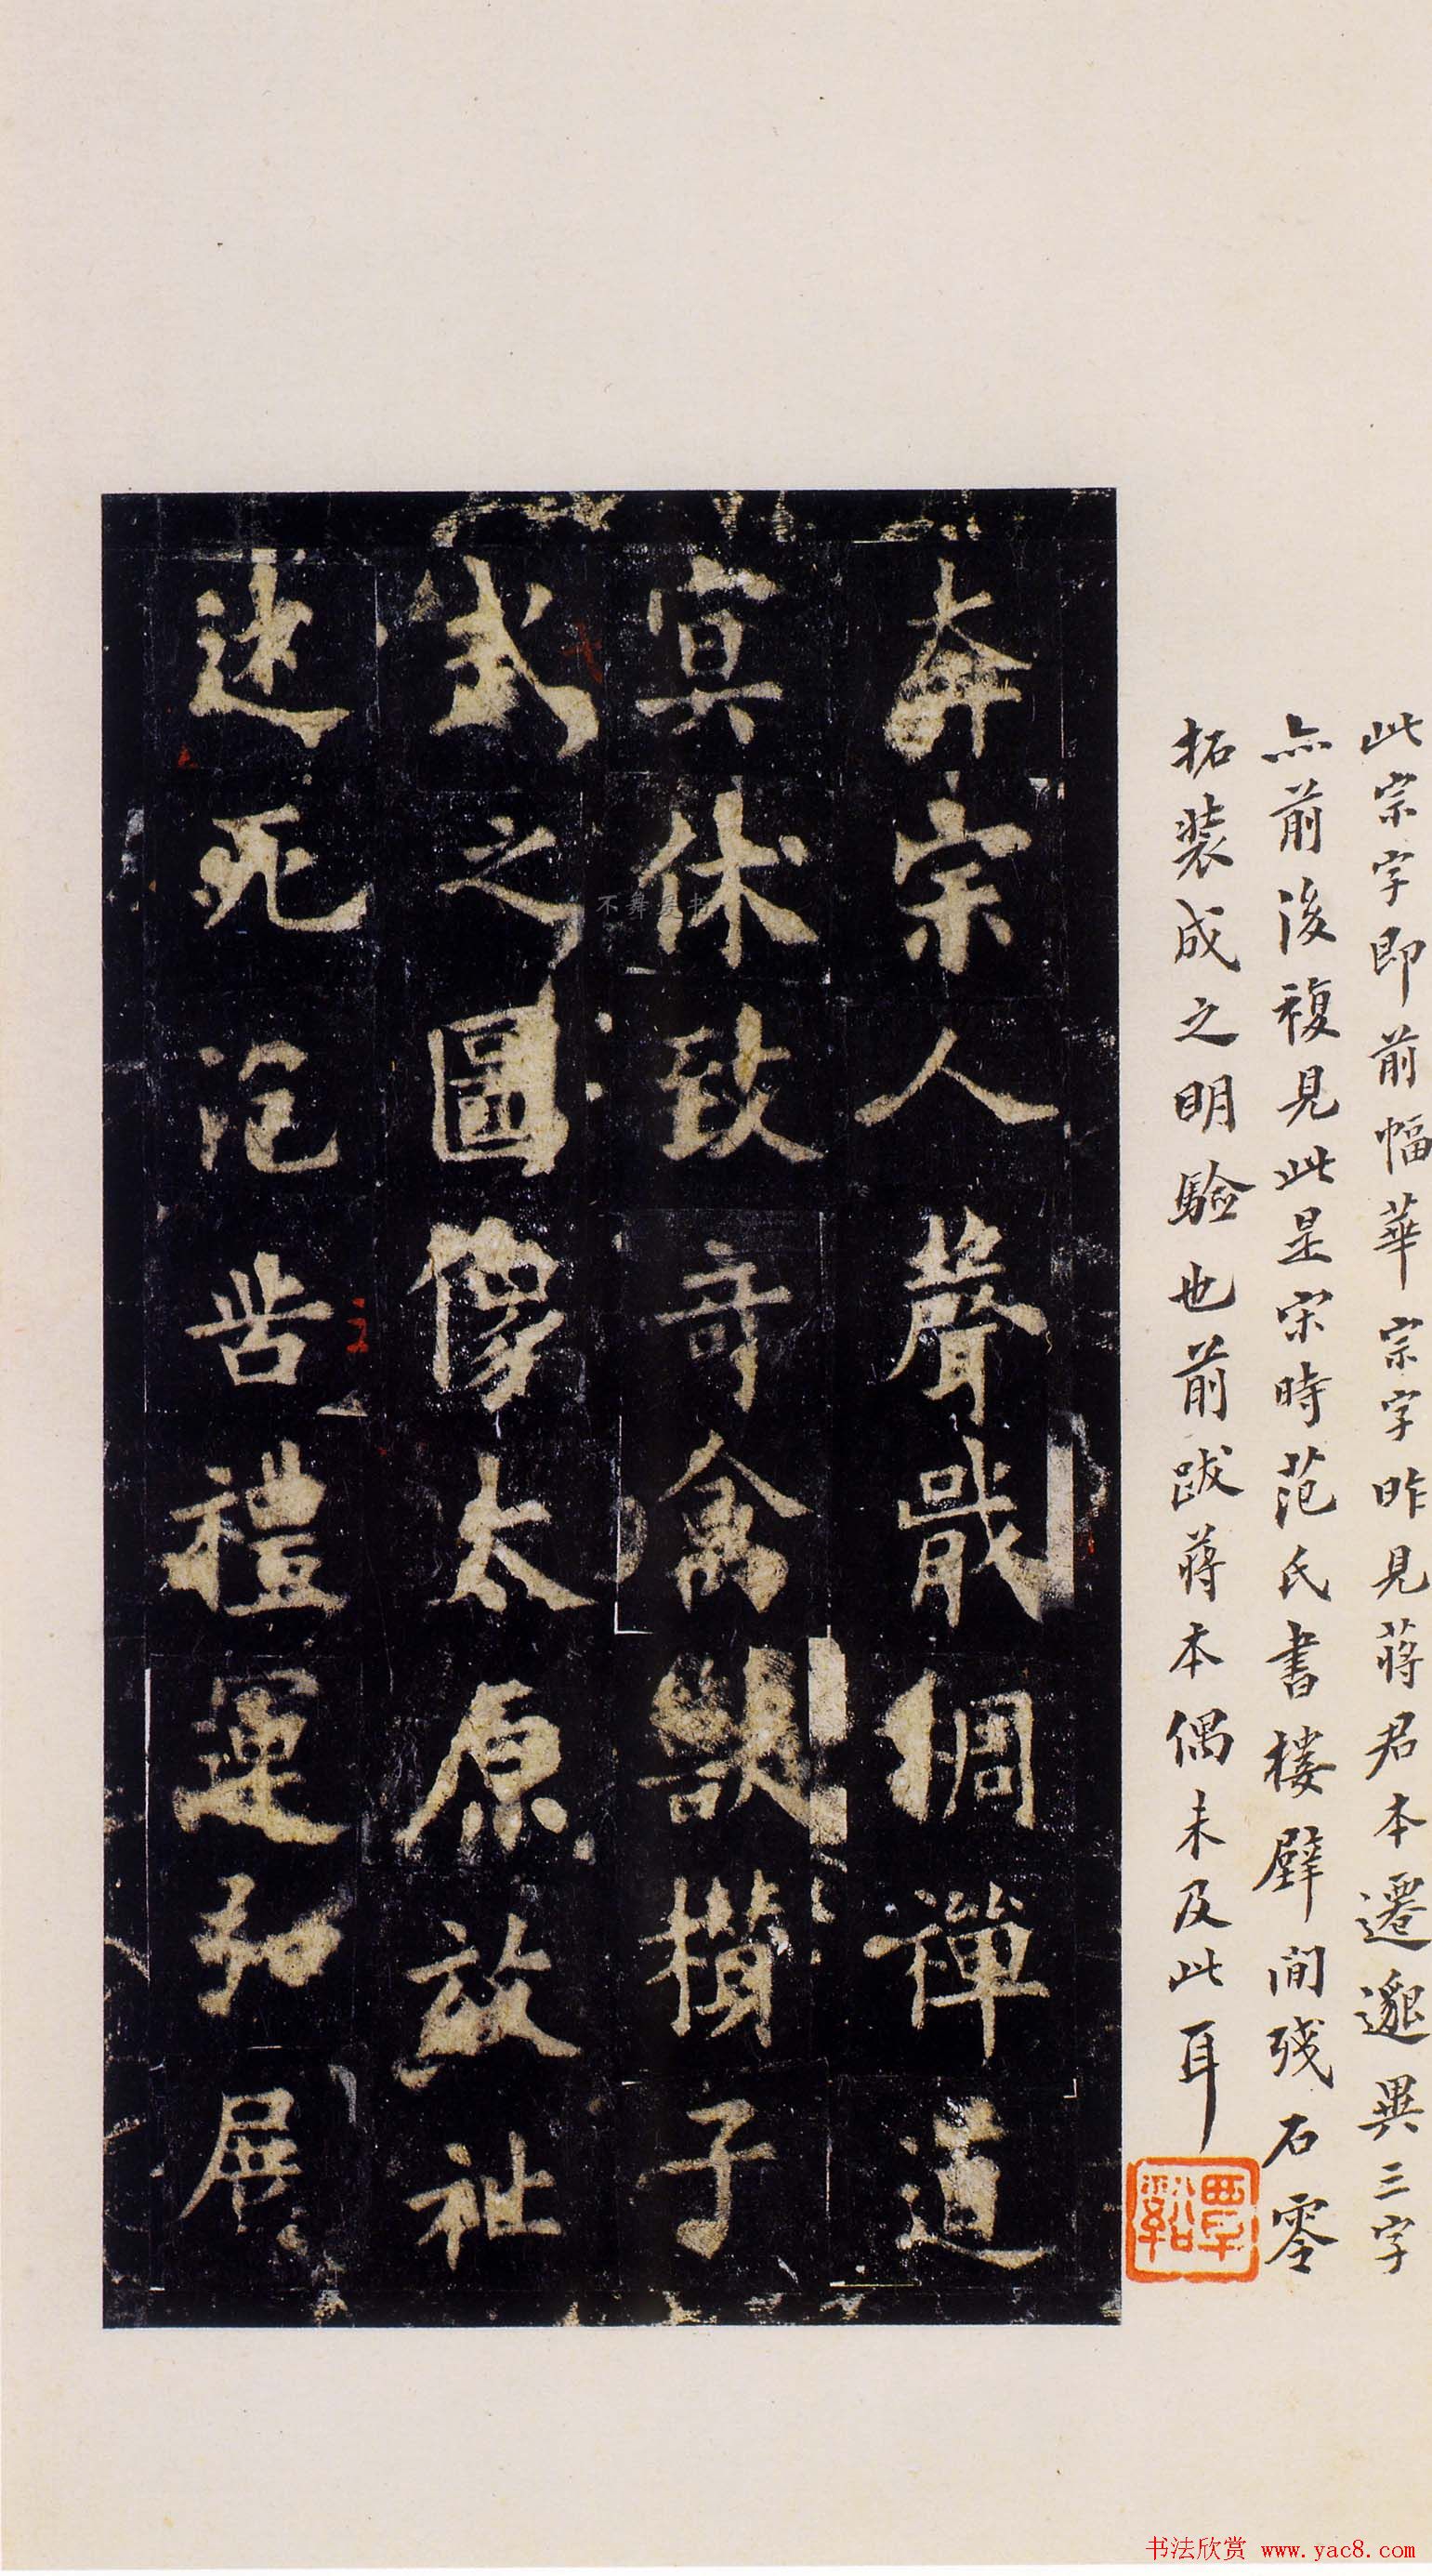 此宗字即前幅華宗字昨見蔣君本遷邈異三字
亦前後複見此是宋時范氏書樓壁間殘石零
拓裝成之明驗也前跋蔣本偶未及此耳
覃谿
奔宗人聲戢綢禪道
寘休致奇禽獸攢子
武之圖像太原放祉
迷死泥啚禮運弘展
书法欣赏 www.yac8.com